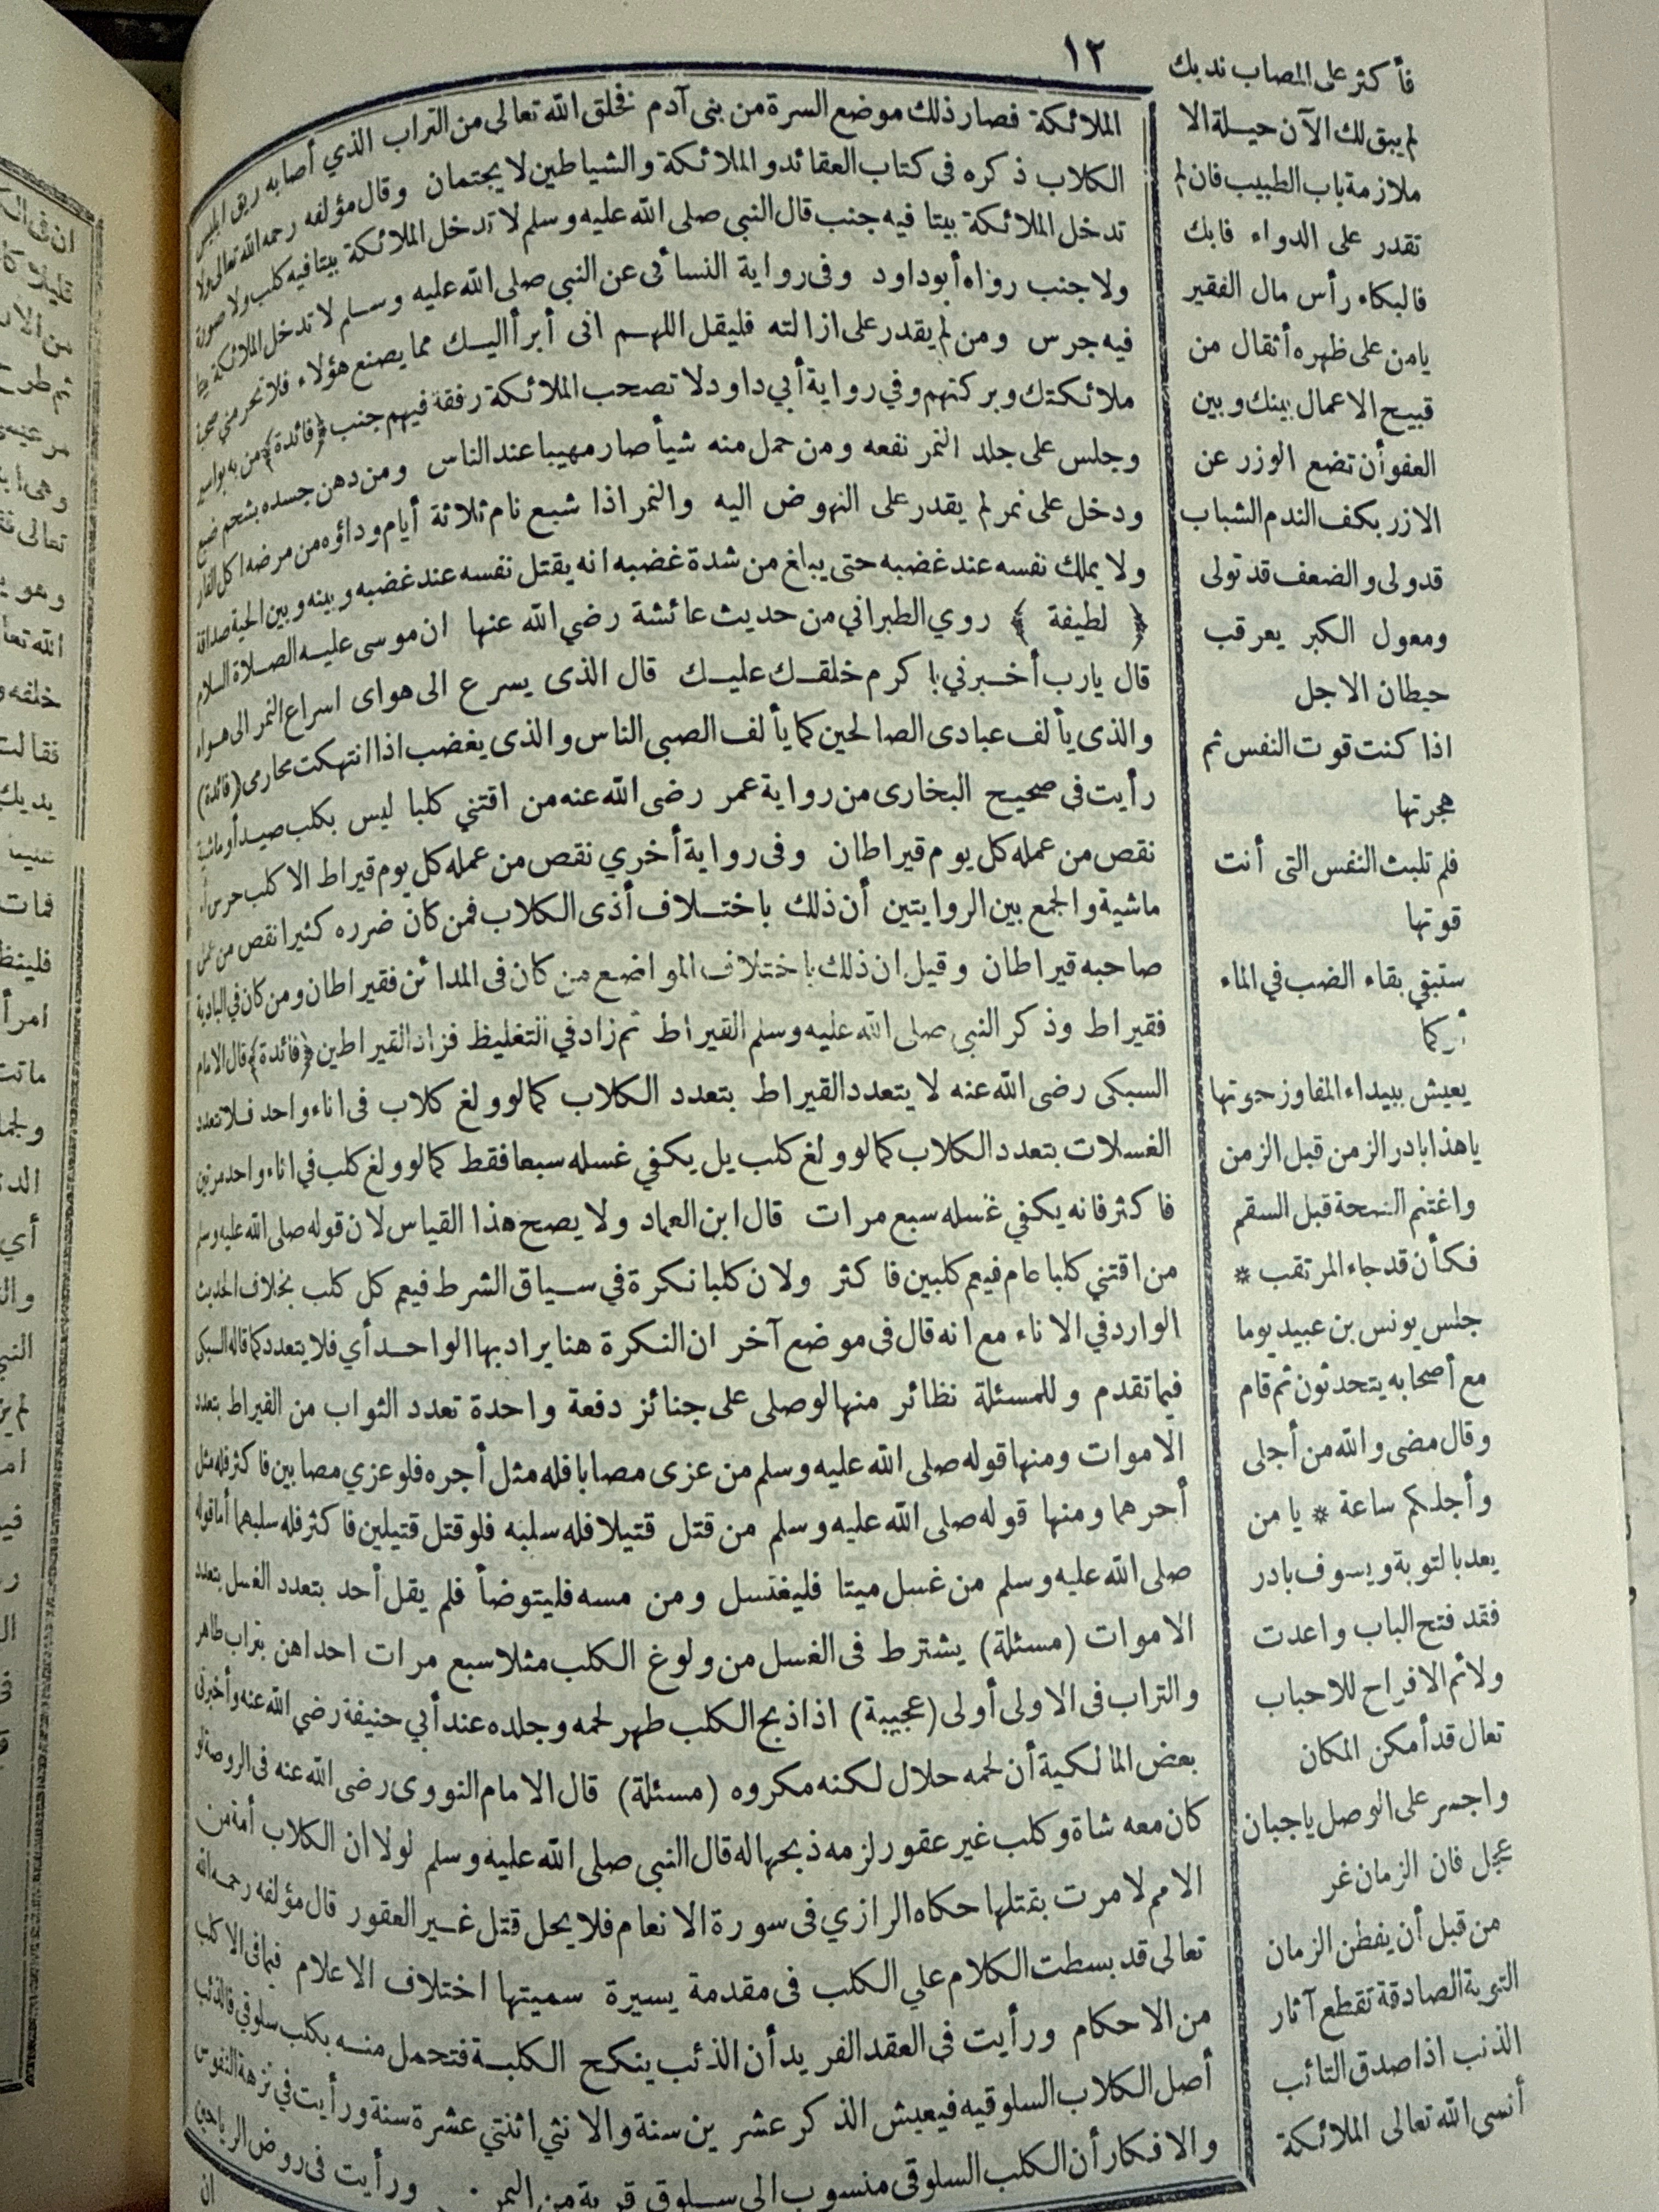 ١٢
الملائكة فصار ذلك موضع السرة من بنى آدم فخلق الله تعالى من التراب الذي أصابه ريق ابليس
الكلاب ذكره فى كتاب العقائد والملائكة والشياطين لا يجتمعان وقال مؤلفه رحمه الله تعالى ولا
تدخل الملائكة بيتا فيه جنب قال النبي صلى الله عليه وسلم لا تدخل الملائكة بيتا فيه كلب ولا صورة
ولا جنب رواه أبو داود وفى رواية النسائى عن النبي صلى الله عليه وسلم لا تدخل الملائكة بيتا
فيه جرس ومن لم يقدر على ازالته فليقل اللهم انى أبرأ اليك مما يصنع هؤلاء فلا تحرمني صحبة
ملائكتك وبركتهم وفي رواية أبي داود لا تصحب الملائكة رفقة فيهم جنب ﴿فائدة﴾ من به بواسير
وجلس على جلد النمر نفعه ومن حمل منه شيأ صار مهيبا عند الناس ومن دهن جسده بشحم ضبع
ودخل على نمر لم يقدر على النهوض اليه والنمر اذا شبع نام ثلاثة أيام وداؤه من مرضه اكل الفار
ولا يملك نفسه عند غضبه حتى يباغ من شدة غضبه انه يقتل نفسه عند غضبه وبينه وبين الحية صداقة
﴿ لطيفة ﴾ روي الطبراني من حديث عائشة رضي الله عنها ان موسى عليه الصلاة السلام
قال يارب أخبرني باكرم خلقك عليك قال الذى يسرع الى هواى اسراع النمر الى هواه
والذى يألف عبادى الصالحين كما يألف الصبى الناس والذى يغضب اذا انتهكت محارمى (فائدة)
رأيت فى صحيح البخارى من رواية عمر رضى الله عنه من اقتني كلبا ليس بكلب صيد أو ماشية
نقص من عمله كل يوم قيراطان وفى رواية أخري نقص من عمله كل يوم قيراط الا كلب حرس أو
ماشية والجمع بين الروايتين أن ذلك باختلاف أذى الكلاب فمن كان ضرره كثيرا نقص من عمل
صاحبه قيراطان وقيل ان ذلك باختلاف المواضع من كان فى المدائن فقيراطان ومن كان في البادية
فقيراط وذكر النبى صلى الله عليه وسلم القيراط ثم زاد في التغليظ فزاد القيراطين ﴿فائدة﴾ قال الامام
السبكى رضى الله عنه لا يتعدد القيراط بتعدد الكلاب كما لو ولغ كلاب فى اناء واحد فلا تتعدد
الغسلات بتعدد الكلاب كما لو ولغ كلب يل يكفي غسله سبعا فقط كما لو ولغ كلب في اناء واحد مرتين
فاكثر فانه يكفي غسله سبع مرات قال ابن العماد ولا يصح هذا القياس لان قوله صلى الله عليه وسلم
من اقتني كلبا عام فيعم كلبين فاكثر ولان كلبا نكرة في سياق الشرط فيعم كل كلب بخلاف الحديث
الوارد في الاناء مع انه قال فى موضع آخر ان النكرة هنا يراد بها الواحد أي فلا يتعدد كما قاله السبكى
فيما تقدم وللمسئلة نظائر منها لو صلى على جنائز دفعة واحدة تعدد الثواب من القيراط بتعدد
الاموات ومنها قوله صلى الله عليه وسلم من عزى مصابا فله مثل أجره فلو عزي مصابين فاكثر فله مثل
أجرهما ومنها قوله صلى الله عليه وسلم من قتل قتيلا فله سلبه فلو قتل قتيلين فاكثر فله سلبهما أما قوله
صلى الله عليه وسلم من غسل ميتا فليغتسل ومن مسه فليتوضأ فلم يقل أحد بتعدد الغسل بتعدد
الاموات (مسئلة) يشترط فى الغسل من ولوغ الكلب مثلا سبع مرات احداهن بتراب طاهر
والتراب فى الاولى أولى (عجيبة) اذا ذبح الكلب طهر لحمه وجلده عند أبي حنيفة رضي الله عنه وأخبرنى
بعض المالكية أن لحمه حلال لكنه مكروه (مسئلة) قال الامام النووى رضى الله عنه فى الروضة لو
كان معه شاة وكلب غير عقور لزمه ذبحها له قال النبى صلى الله عليه وسلم لولا ان الكلاب أمة من
الامم لامرت بقتلها حكاه الرازي فى سورة الانعام فلا يحل قتل غير العقور قال مؤلفه رحمه الله
تعالى قد بسطت الكلام علي الكلب فى مقدمة يسيرة سميتها اختلاف الاعلام فيما فى الاكلب
من الاحكام ورأيت فى العقد الفريد أن الذئب ينكح الكلبة فتحمل منه بكلب سلوقي فالذئب
أصل الكلاب السلوقيه فيعيش الذكر عشرين سنة والانثي اثنتي عشرة سنة ورأيت في نزهة النفوس
والافكار أن الكلب السلوقى منسوب الى سلوق قرية من اليمن ورأيت فى روض الرياحين
ان
فأكثر على المصاب ندبك
لم يبق لك الآن حيلة الا
ملازمة باب الطبيب فان لم
تقدر على الدواء فابك
فالبكاء رأس مال الفقير
يامن على ظهره أثقال من
قبيح الاعمال بينك وبين
العفو أن تضع الوزر عن
الازر بكف الندم الشباب
قد ولى والضعف قد تولى
ومعول الكبر يعرقب
حيطان الاجل
اذا كنت قوت النفس ثم
هجرتها
فلم تلبث النفس التى أنت
قوتها
ستبقي بقاء الضب في الماء
أوكما
يعيش ببيداء المفاوز حوتها
ياهذا بادر الزمن قبل الزمن
واغتنم الصحة قبل السقم
فكأن قد جاء المرتقب *
جلس يونس بن عبيد يوما
مع أصحابه يتحدثون ثم قام
وقال مضى والله من أجلى
وأجلكم ساعة * يا من
يعد بالتوبة ويسوف بادر
فقد فتح الباب واعدت
ولائم الافراح للاحباب
تعال قد أمكن المكان
واجسر على الوصل ياجبان
عجل فان الزمان غر
من قبل أن يفطن الزمان
التوبة الصادقة تقطع آثار
الذنب اذا صدق التائب
أنسى الله تعالى الملائكة